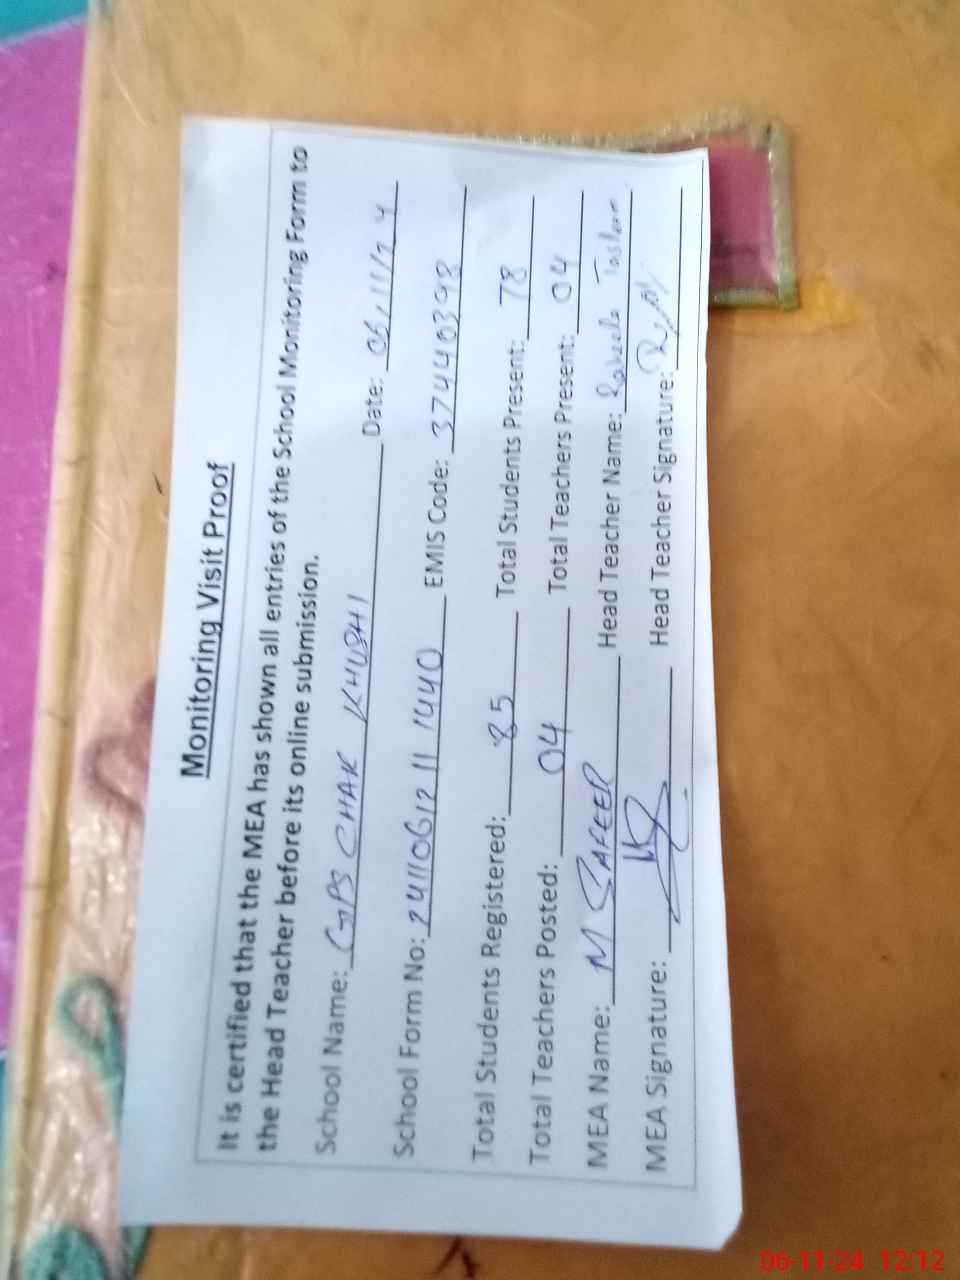 Monitoring Visit Proof
It is certified that the MEA has shown all entries of the School Monitoring Form to
the Head Teacher before its online submission.
School Name: GPS CHAK KHUSHI Date: 11/24
School Form No: 2411061211 1440 EMIS Code: 37440398
Total Students Registered: 85 Total Students Present: 78
Total Teachers Posted: 04 Total Teachers Present: 04
MEA Name: M SAFEER Head Teacher Name: Raheela Taslem
MEA Signature: Head Teacher Signature:
06-11-24 12/12